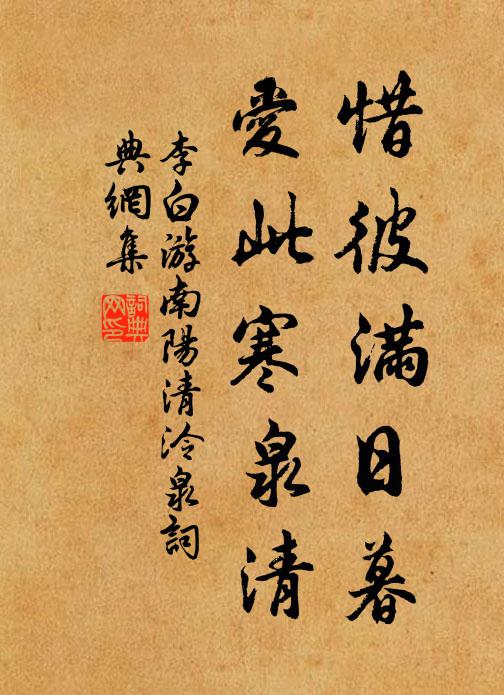 惜彼滿日暮
愛此寒泉清
李白游南陽清泠泉詞
典網集
詞典
网印